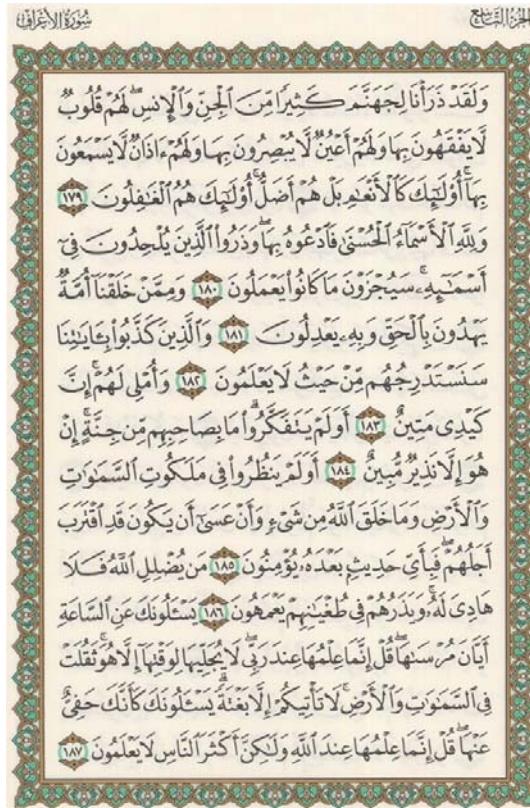 الجزء التاسع
سورة الأعراف
وَلَقَدْ ذَرَأْنَا لِجَهَنَّمَ كَثِيرًا مِّنَ الْجِنِّ وَالْإِنسِ ۖ لَهُمْ قُلُوبٌ
لَّا يَفْقَهُونَ بِهَا وَلَهُمْ أَعْيُنٌ لَّا يُبْصِرُونَ بِهَا وَلَهُمْ ءَاذَانٌ لَّا يَسْمَعُونَ
بِهَا ۚ أُو۟لَٰٓئِكَ كَالْأَنْعَٰمِ بَلْ هُمْ أَضَلُّ ۚ أُو۟لَٰٓئِكَ هُمُ الْغَٰفِلُونَ ١٧٩
وَلِلَّهِ الْأَسْمَآءُ الْحُسْنَىٰ فَادْعُوهُ بِهَا ۖ وَذَرُوا۟ الَّذِينَ يُلْحِدُونَ فِىٓ
أَسْمَٰٓئِهِۦ ۚ سَيُجْزَوْنَ مَا كَانُوا۟ يَعْمَلُونَ ١٨٠ وَمِمَّنْ خَلَقْنَآ أُمَّةٌ
يَهْدُونَ بِالْحَقِّ وَبِهِۦ يَعْدِلُونَ ١٨١ وَالَّذِينَ كَذَّبُوا۟ بِـَٔايَٰتِنَا
سَنَسْتَدْرِجُهُم مِّنْ حَيْثُ لَا يَعْلَمُونَ ١٨٢ وَأُمْلِى لَهُمْ ۚ إِنَّ
كَيْدِى مَتِينٌ ١٨٣ أَوَلَمْ يَتَفَكَّرُوا۟ ۗ مَا بِصَاحِبِهِم مِّن جِنَّةٍ ۚ إِنْ
هُوَ إِلَّا نَذِيرٌ مُّبِينٌ ١٨٤ أَوَلَمْ يَنظُرُوا۟ فِى مَلَكُوتِ السَّمَٰوَٰتِ
وَالْأَرْضِ وَمَا خَلَقَ اللَّهُ مِن شَىْءٍ وَأَنْ عَسَىٰٓ أَن يَكُونَ قَدِ اقْتَرَبَ
أَجَلُهُمْ ۖ فَبِأَىِّ حَدِيثٍۭ بَعْدَهُۥ يُؤْمِنُونَ ١٨٥ مَن يُضْلِلِ اللَّهُ فَلَا
هَادِىَ لَهُۥ ۚ وَيَذَرُهُمْ فِى طُغْيَٰنِهِمْ يَعْمَهُونَ ١٨٦ يَسْـَٔلُونَكَ عَنِ السَّاعَةِ
أَيَّانَ مُرْسَىٰهَا ۖ قُلْ إِنَّمَا عِلْمُهَا عِندَ رَبِّى ۖ لَا يُجَلِّيهَا لِوَقْتِهَآ إِلَّا هُوَ ۚ ثَقُلَتْ
فِى السَّمَٰوَٰتِ وَالْأَرْضِ ۚ لَا تَأْتِيكُمْ إِلَّا بَغْتَةً ۗ يَسْـَٔلُونَكَ كَأَنَّكَ حَفِىٌّ
عَنْهَا ۖ قُلْ إِنَّمَا عِلْمُهَا عِندَ اللَّهِ وَلَٰكِنَّ أَكْثَرَ النَّاسِ لَا يَعْلَمُونَ ١٨٧